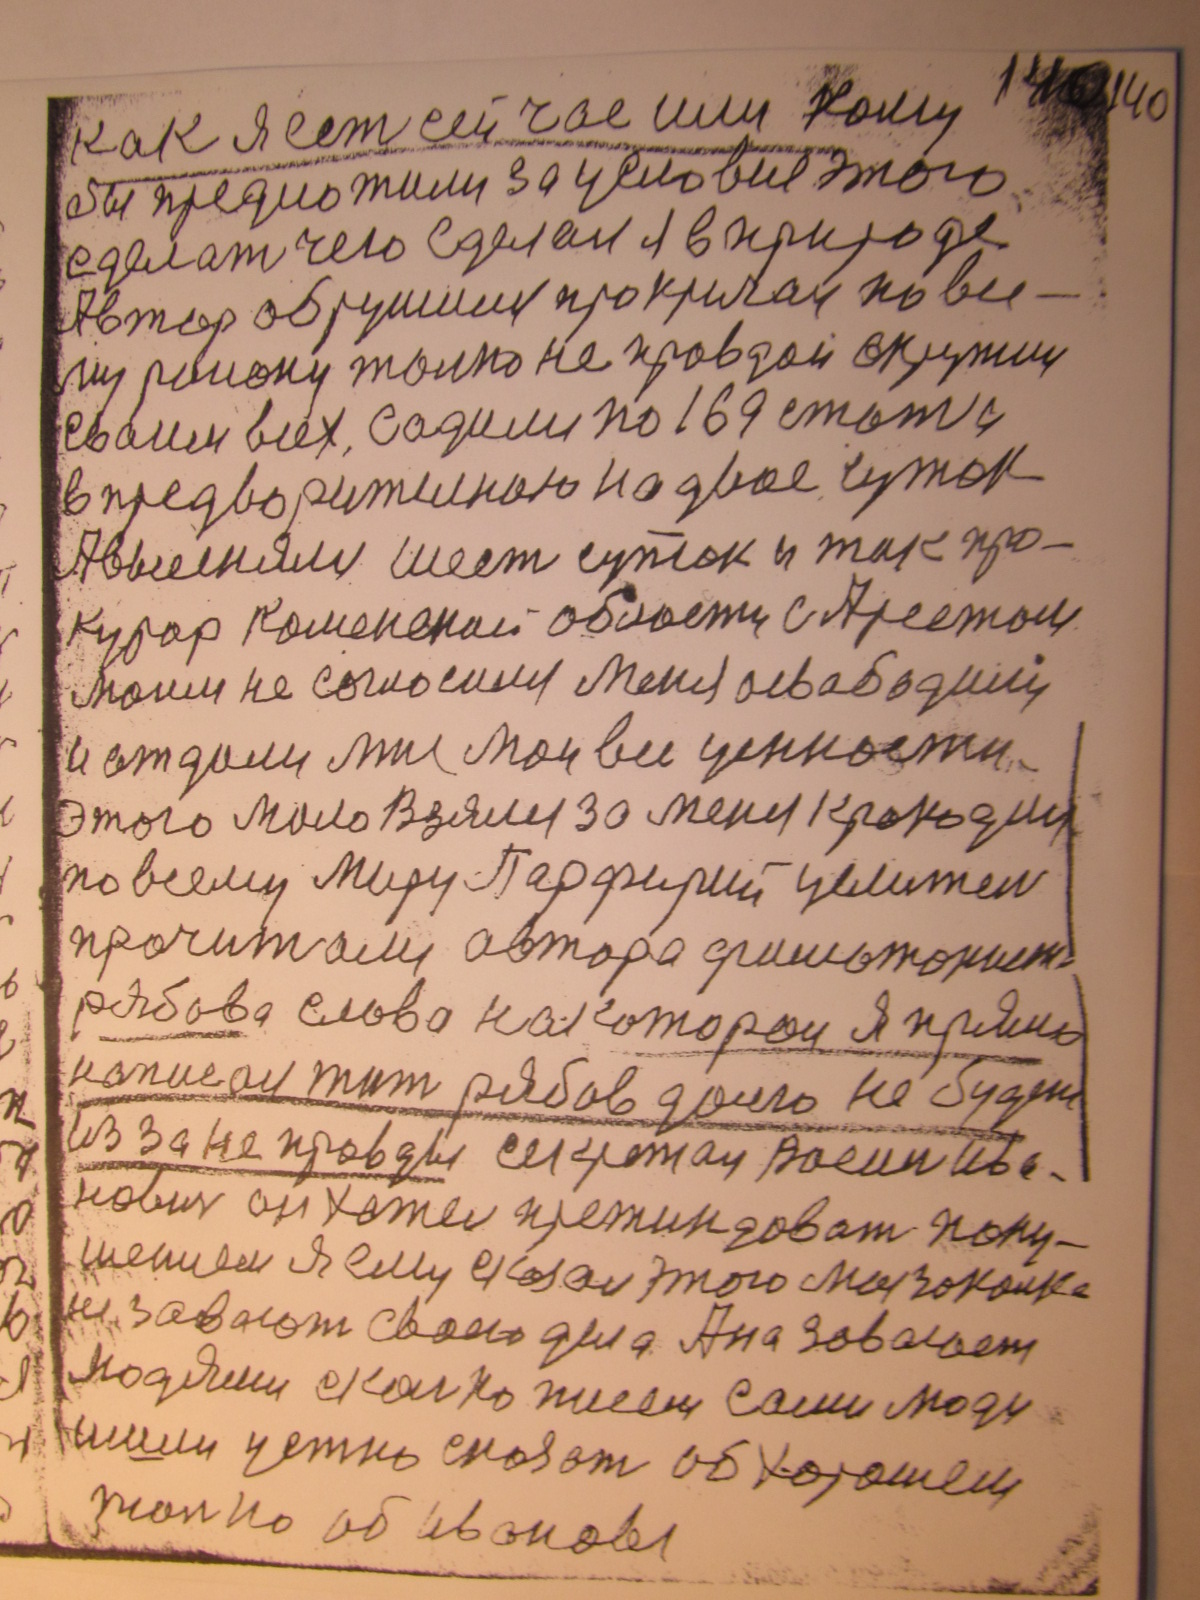 140 140
как я сет сей час или кому
бы предложили за условия этого
сделат чего сделал я в природе
Автор обрушился прокричал по все-
му району толко не правдой окружил
своим всех. Садили по 169 стати
в предворителною на двое суток
А выесняли шест суток и так про-
курор Каменской области с Арестом
моим не согласился Меня освабодили
и отдали мне мои все ценности
этого мало Взяли за меня крокодил
по всему Миру Парфирий
прочитали автора фильетонист
рябова слова на которои я прямо
написал тит рябов долго не будет
из за не правды секретал Василий Ива-
нович он хател претиндоват поку-
шением я ему сказал этого мы законика
не забвают своего дела А назовают
людями сколко писем сами люди
шлли устно сказат об хорошем
толко об Иванове